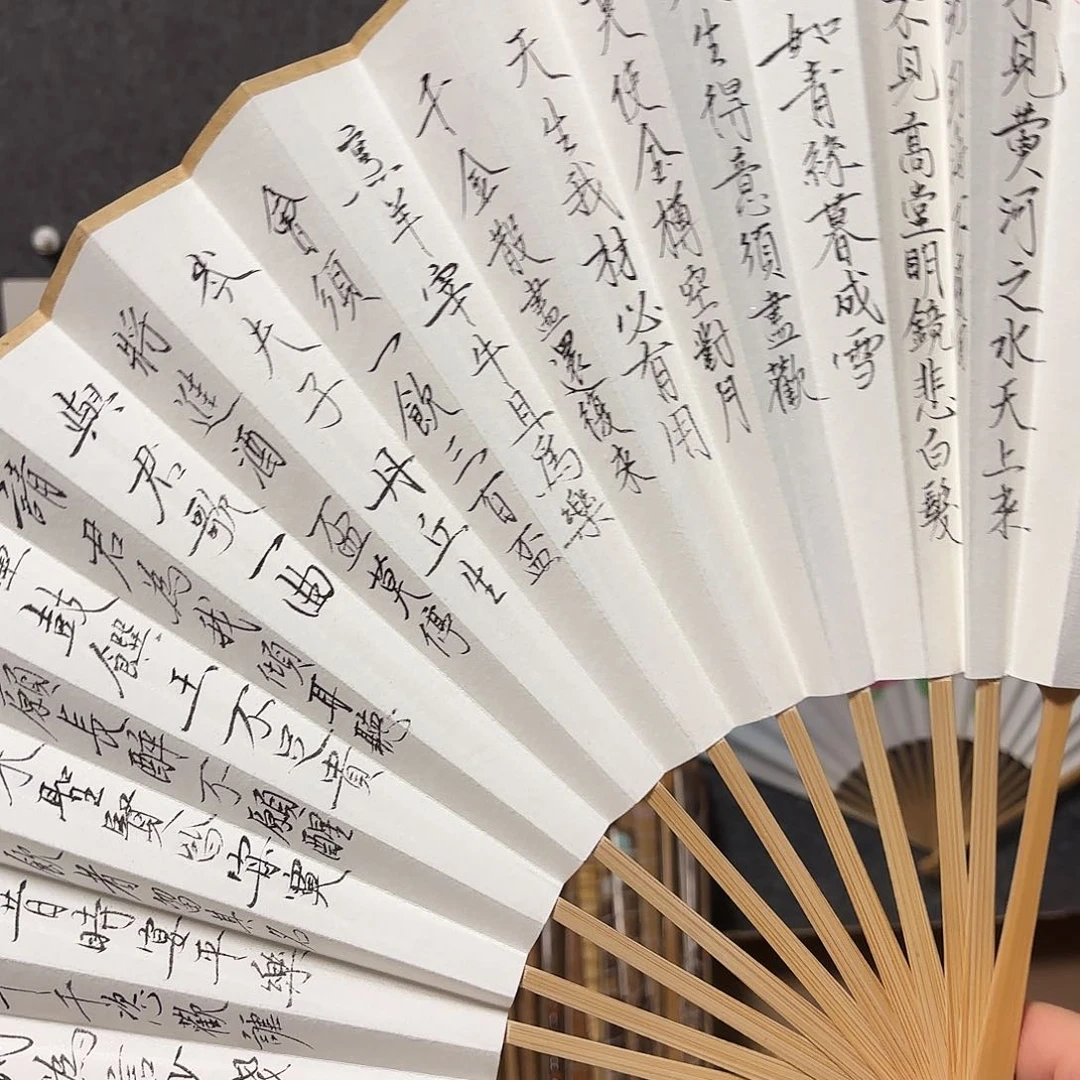 不見黄河之水天上來
不見高堂明鏡悲白髮
如青緣暮成雪
生得意須盡歡
莫使金樽空對月
天生我材必有用
千金散盡還復來
烹羊宰牛且為樂
會須一飲三百盃
岑夫子丹丘生
將進酒盃莫停
與君歌一曲
請君為我傾耳聽
鼓饌玉不足貴
願長醉不願醒
來聖賢皆寂寞
飲者留其名
昔時宴平樂
千恣歡謔
為言少錢